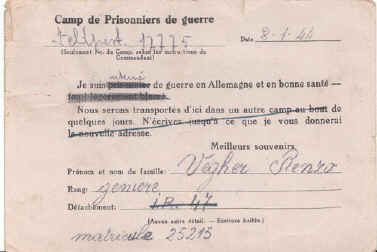 Camp de Prisonniers de guerre
12775 Date 8-1-44
(Seulement No. du Camp, selon les instructions du
Commandant)
interné
Je suis prisonnier de guerre en Allemagne et en bonne santé —
fou légèrement blessé.
Nous serons transportés d'ici dans un autre camp au bout de
quelques jours. N'écrivez jusqu'à ce que je vous donnerai
la nouvelle adresse.
Meilleurs souvenirs
Prénom et nom de famille: Vegher Renzo
Rang:
Détachement: I.R. 47
(Aucun autre détail. — Environs boîtes.)
matricule 25215